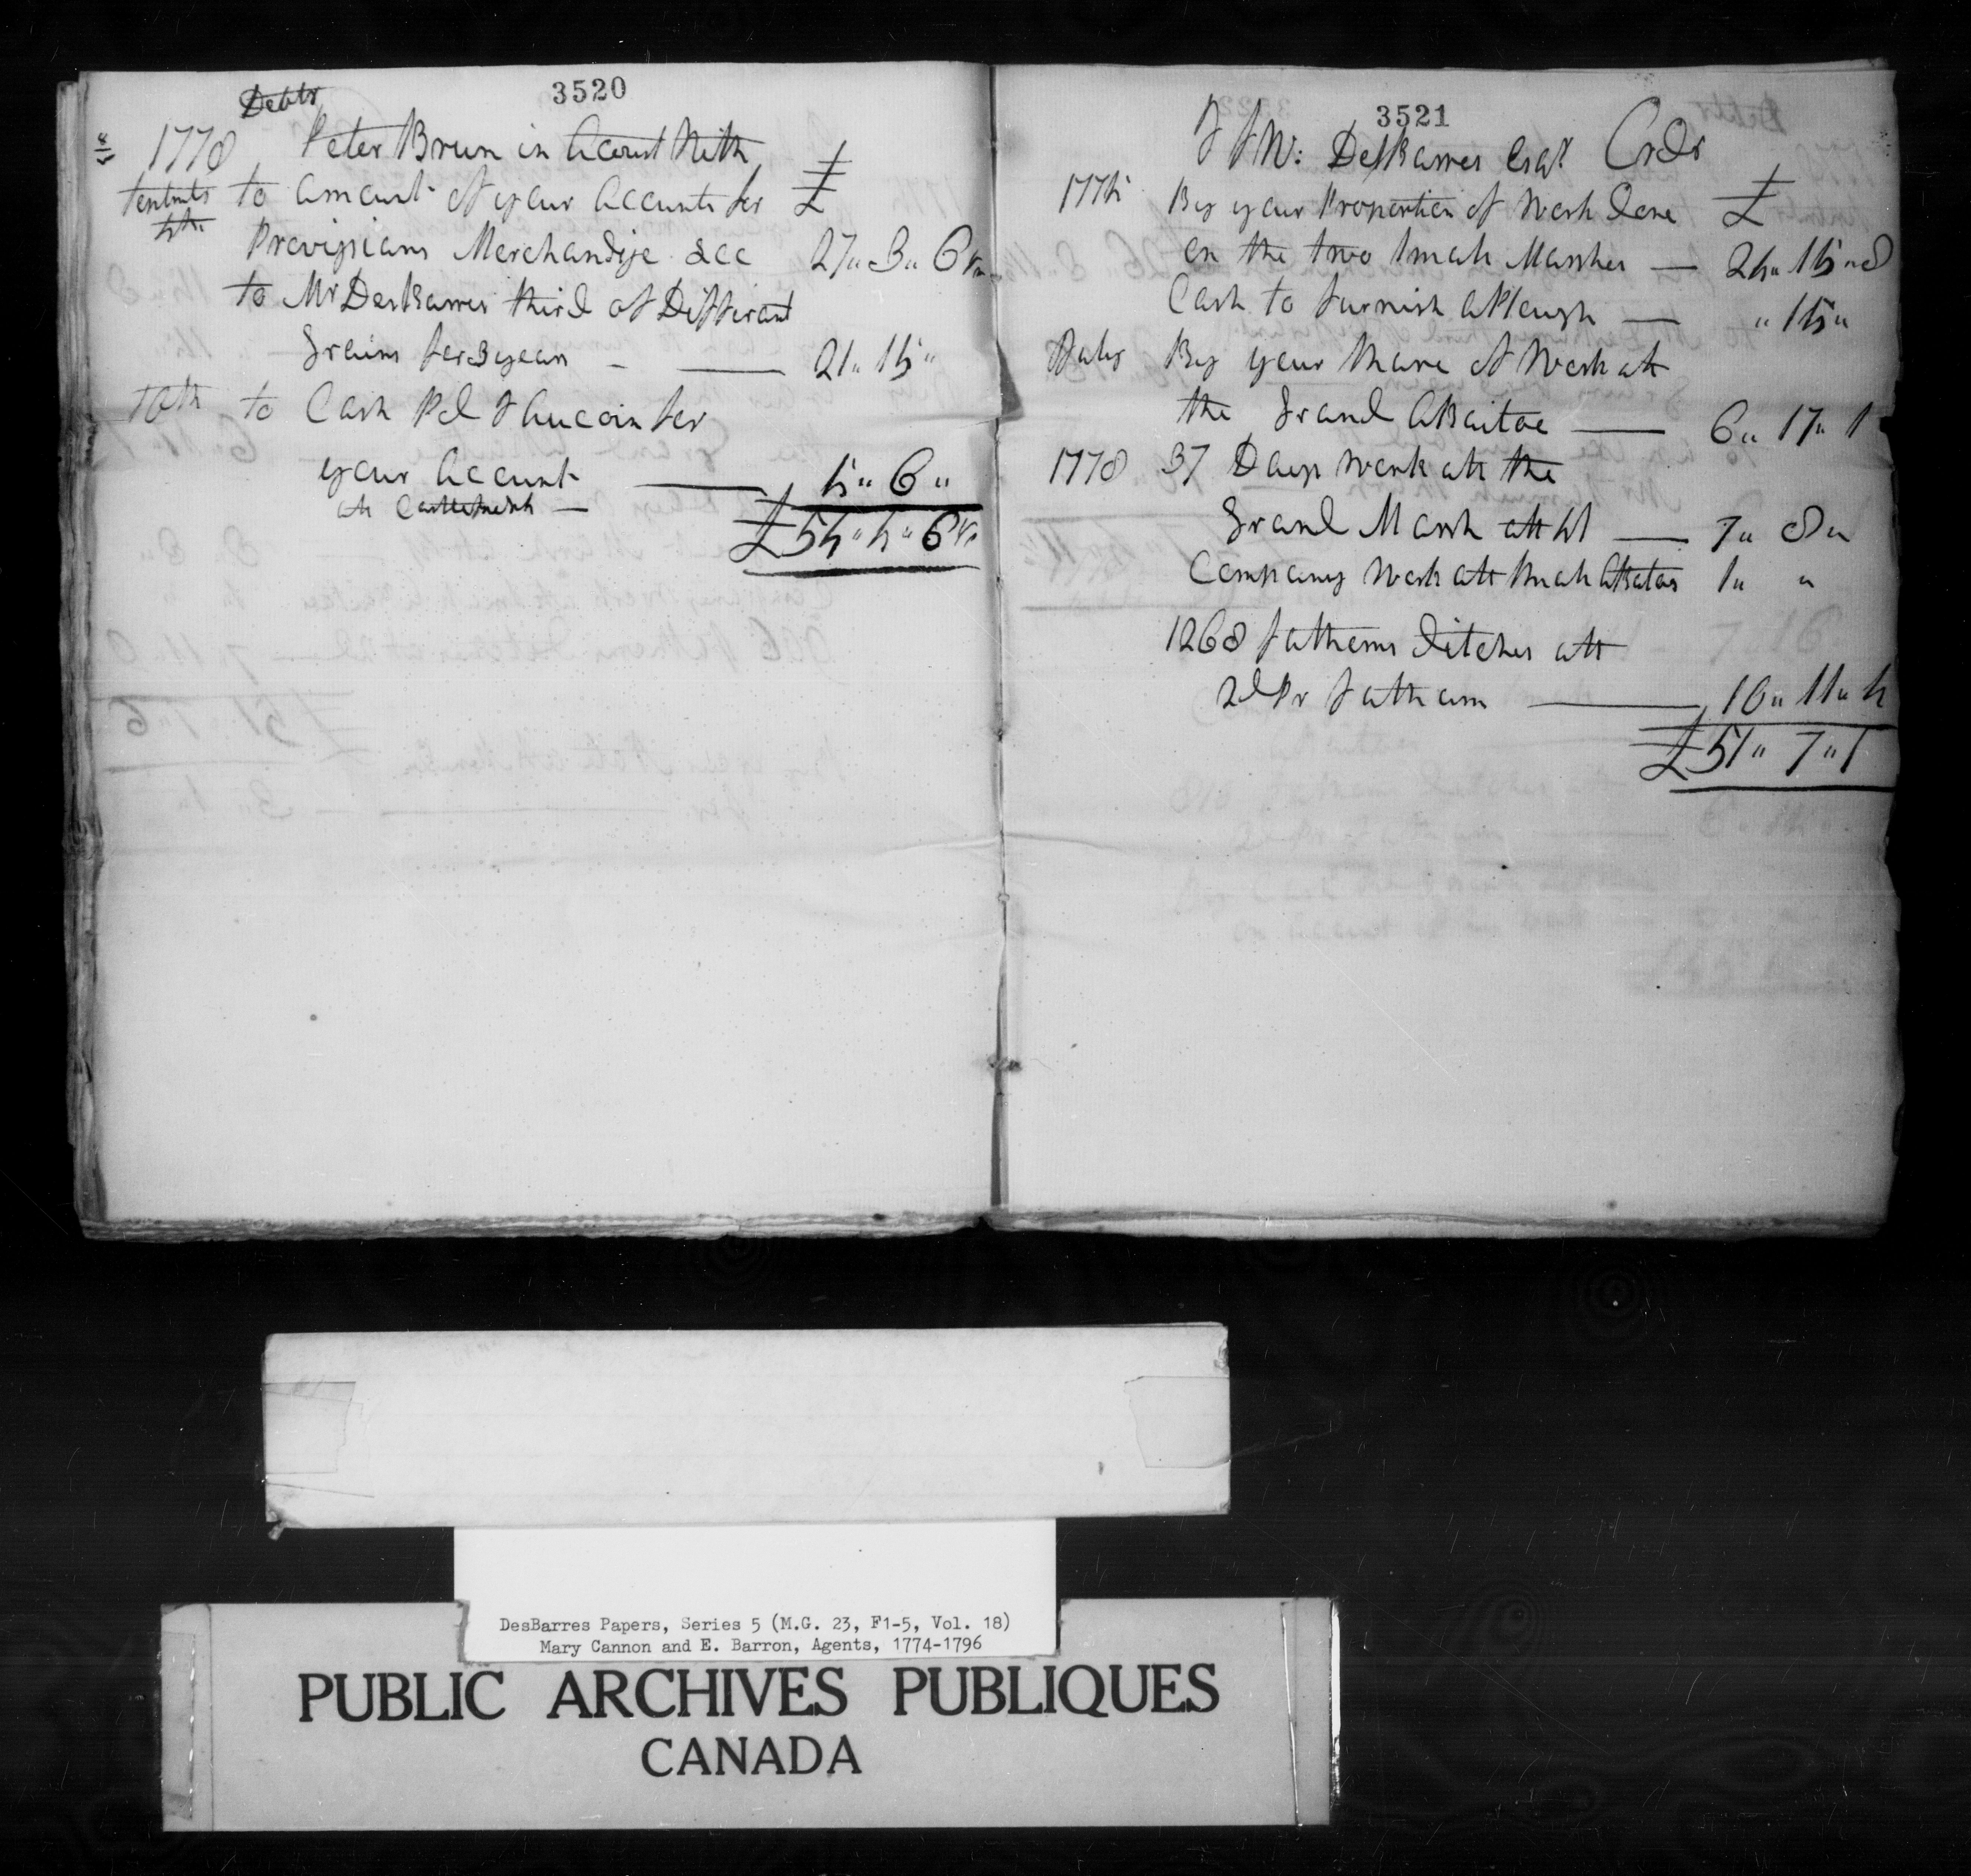 3520
Debtr
1778 Peter Brun in Acount With
to amount of your Accounts for £
Provisions Merchandise &cc 27" 3" 6½
to Mr DesBarres third of Differant
Grains for 3 years — 21" 15"
10th to Cash Pd J Aucoin for
your Account 5" 6"
att
£54" 4" 6½
3521
J F W: DesBarres Esqr Crdr
1775 By your Proportion of Work done £
on the two Small Marshes — 24" 15" 8
Cash to furnish a Plough — " 15"
July By your Share of Work att
the Grand ABaitoe — 6" 17" 1
1778 37 Days Work att the
Grand Marsh att 4/ — 7" 8"
Company Work att Small ABatoe 1" "
1268 fathoms ditches att
2d Pr fathom — 10" 11" 4
£51" 7" 1
DesBarres Papers, Series 5 (M.G. 23, F1-5, Vol. 18)
Mary Cannon and E. Barron, Agents, 1774-1796
PUBLIC ARCHIVES PUBLIQUES
CANADA